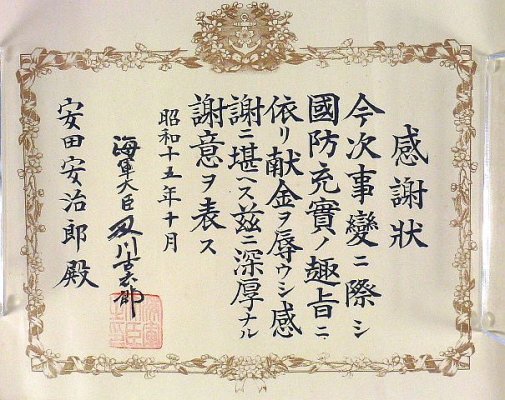 感謝狀
今次事變ニ際シ
國防充實ノ趣旨ニ
依リ献金ヲ辱ウシ感
謝ニ堪ヘス茲ニ深厚ナル
謝意ヲ表ス
昭和十五年十月
海軍大臣 及川古志郎
安田安治郎殿